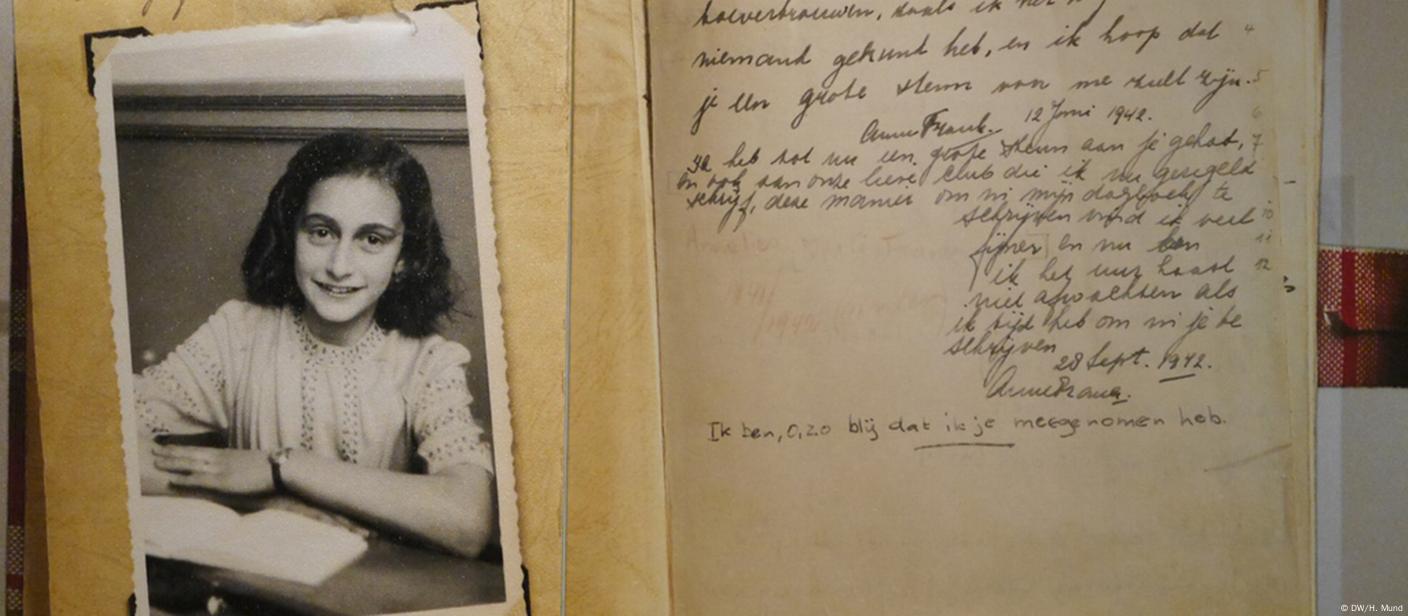 toevertrouwen, zoals ik het
niemand gekund heb, en ik hoop dat
je een grote steun voor me zult zijn.
Anne Frank. 12 Juni 1942.
ik heb tot nu een grote steun aan je gehad,
en ook aan onze lieve club die ik nu geregeld
schrijf, deze manier om in mijn dagboek te
schrijven vind ik veel
fijner en nu ben
ik het uur haast
niet afwachten als
ik tijd heb om in je te
schrijven
28 Sept. 1942.
Anne Frank.
Ik ben, O, zo blij dat ik je meegenomen heb.
5
6
7
10
11
12
1942
© DW/H. Mund